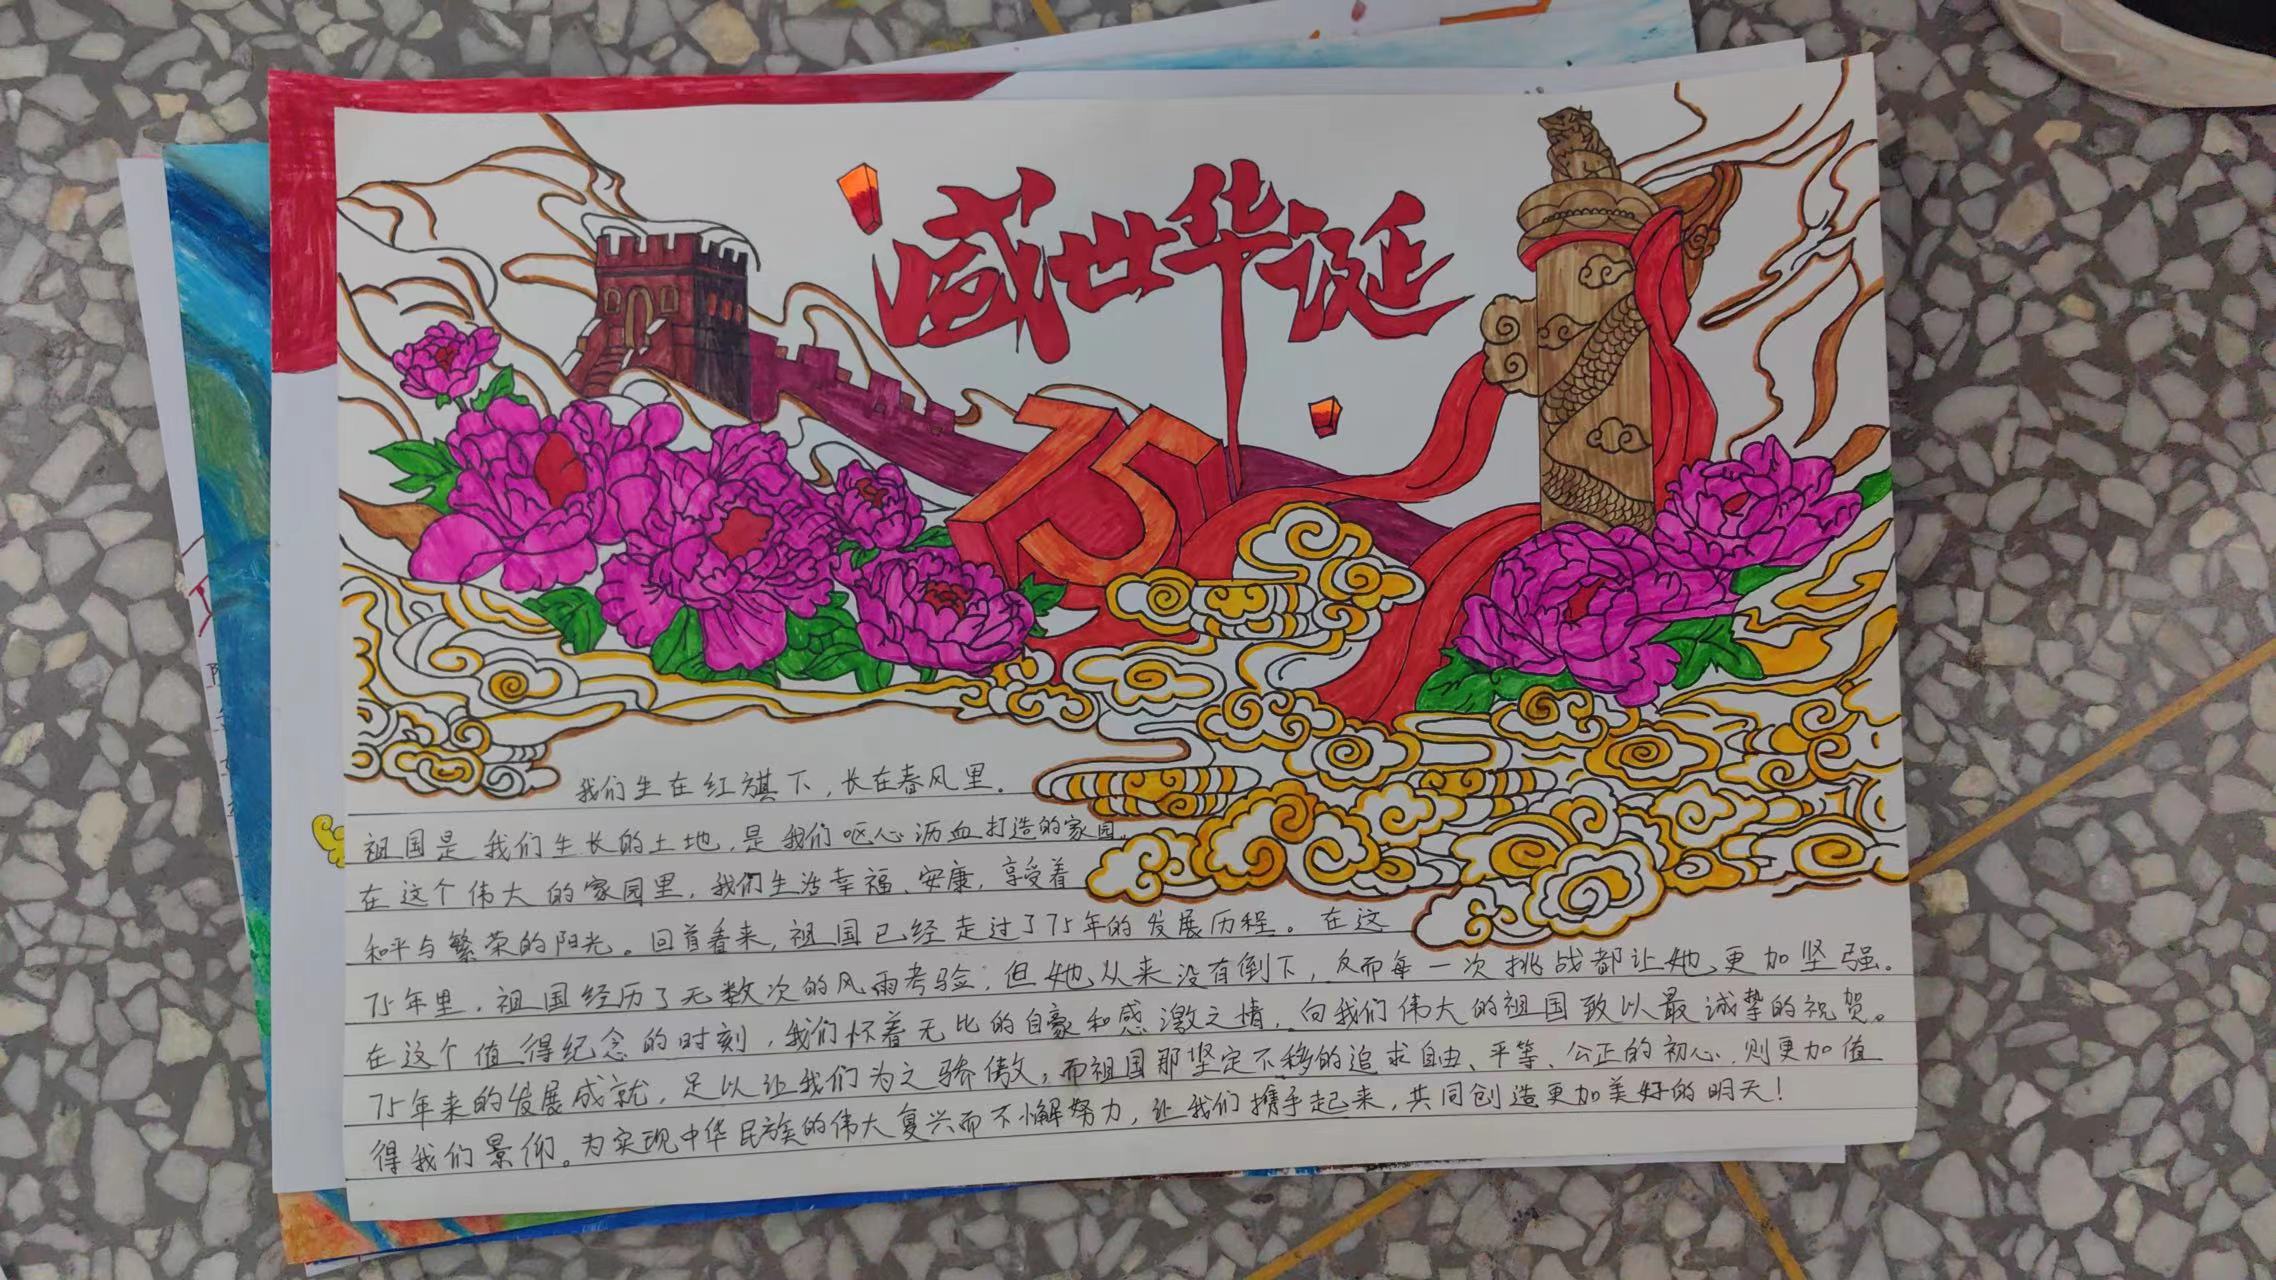 盛世华诞
75
我们生在红旗下，长在春风里。
祖国是我们生长的土地，是我们呕心沥血打造的家园。
在这个伟大的家园里，我们生活幸福、安康，享受着
和平与繁荣的阳光。回首看来，祖国已经走过了75年的发展历程。在这
75年里，祖国经历了无数次的风雨考验；但她从来没有倒下，反而每一次挑战都让她更加坚强。
在这个值得纪念的时刻，我们怀着无比的自豪和感激之情，向我们伟大的祖国致以最诚挚的祝贺。
75年来的发展成就，足以让我们为之骄傲，而祖国那坚定不移的追求自由、平等、公正的初心，则更加值
得我们景仰。为实现中华民族的伟大复兴而不懈努力，让我们携手起来，共同创造更加美好的明天！